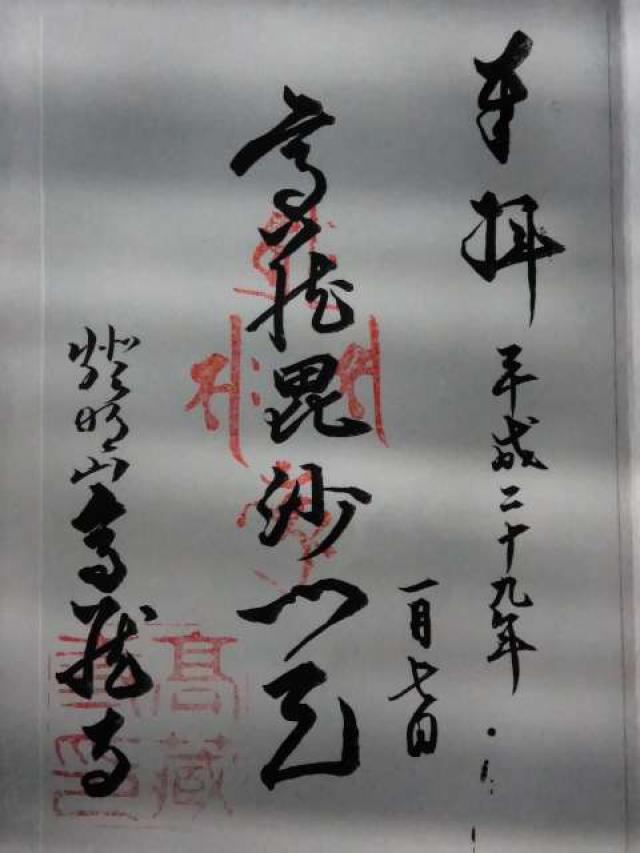 奉拝
平成二十九年
一月七日
高蔵毘沙門天
燈明山高蔵寺
髙藏